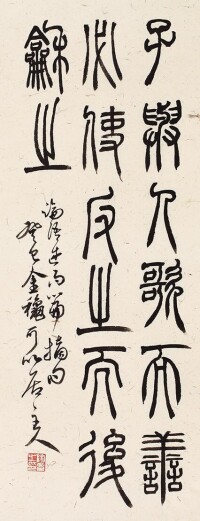 子與人歌而善
必使反之而後
龢之
論語述而篇摘句
癸巳金龝可以居主人